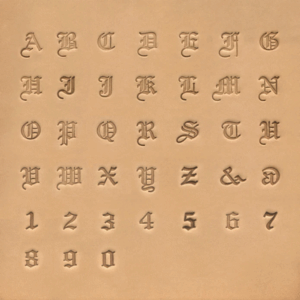 A B C D E F G
H I J K L M N
O P Q R S T U
V W X Y Z & @
1 2 3 4 5 6 7
8 9 0